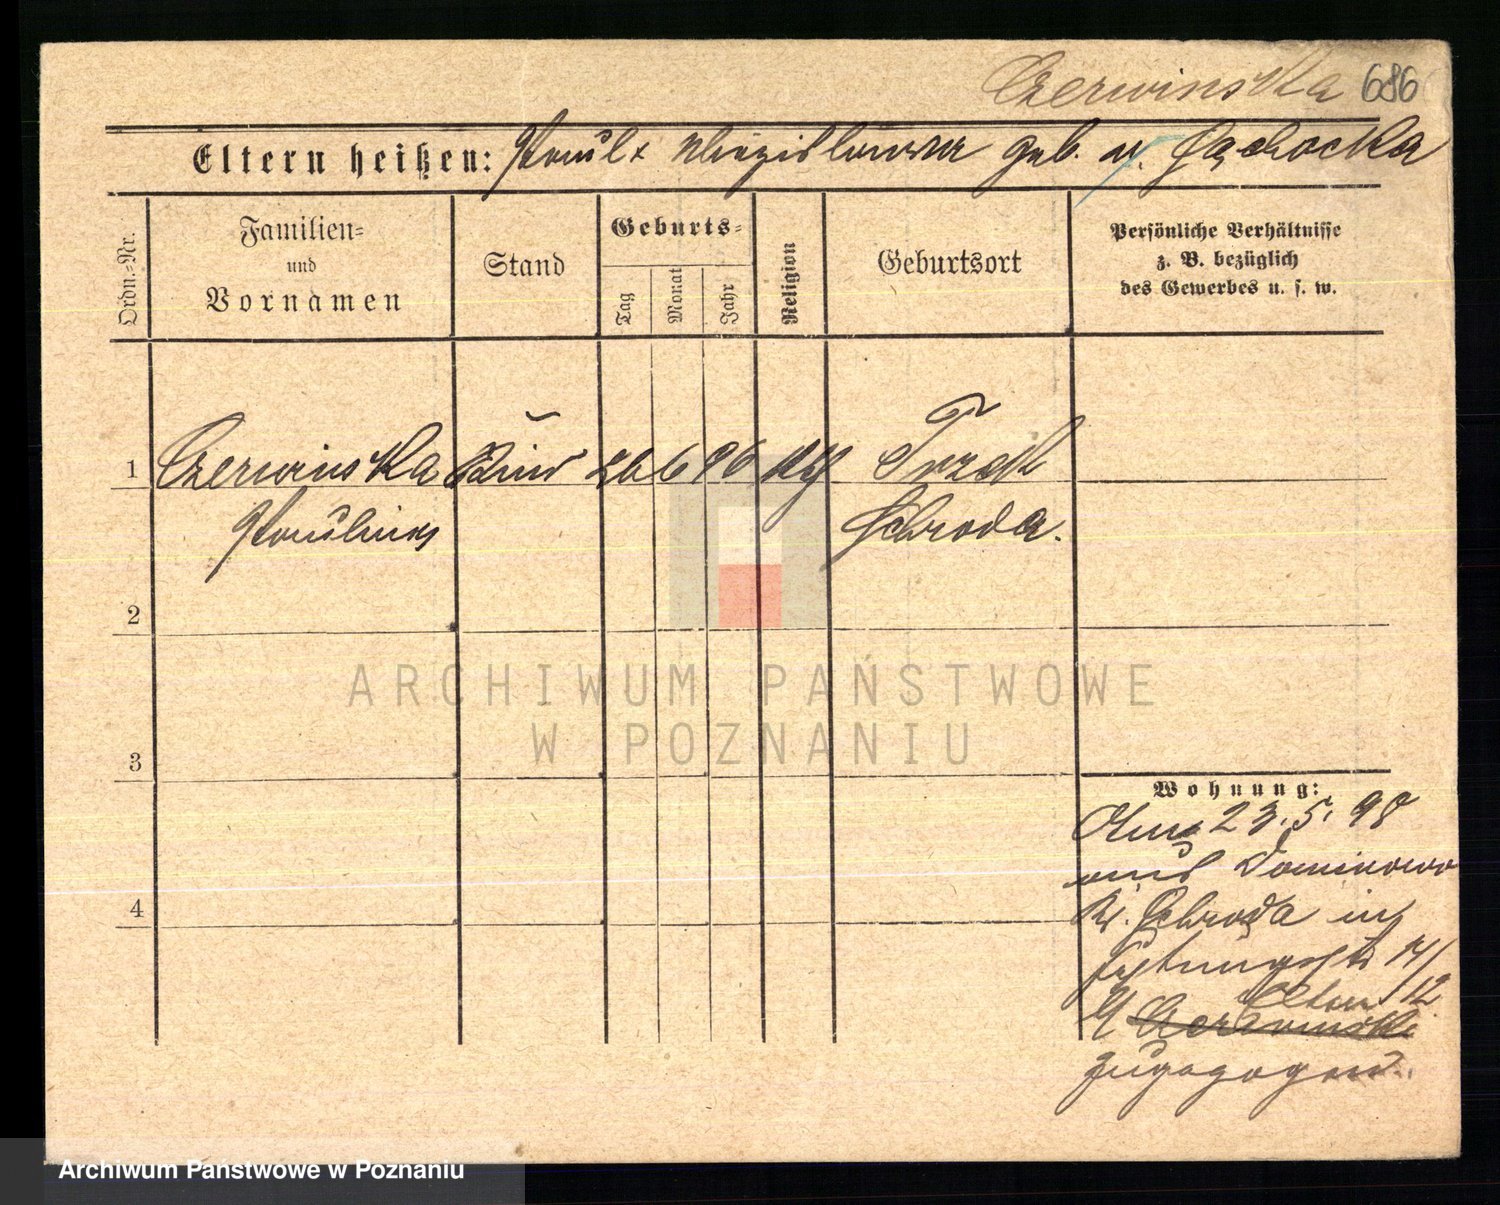 Czerwinska 686
Eltern heißen: Paul x Wladislawa geb. v. Gąchocka
Ordn.-Nr.
Familien-
und
Vornamen
Stand
Geburts-
Tag
Monat
Jahr
Religion
Geburtsort
Persönliche Verhältnisse
z. B. bezüglich
des Gewerbes u. s. w.
1 Czerwinska Kind 26 6 96 kth Trzek
Paulina Schroda.
2
3
4
Wohnung:
23.5.98
aus Dominowo
Kr. Schroda in
17/12
Eltern
zugezogen.
ARCHIWUM PAŃSTWOWE
W POZNANIU
Archiwum Państwowe w Poznaniu